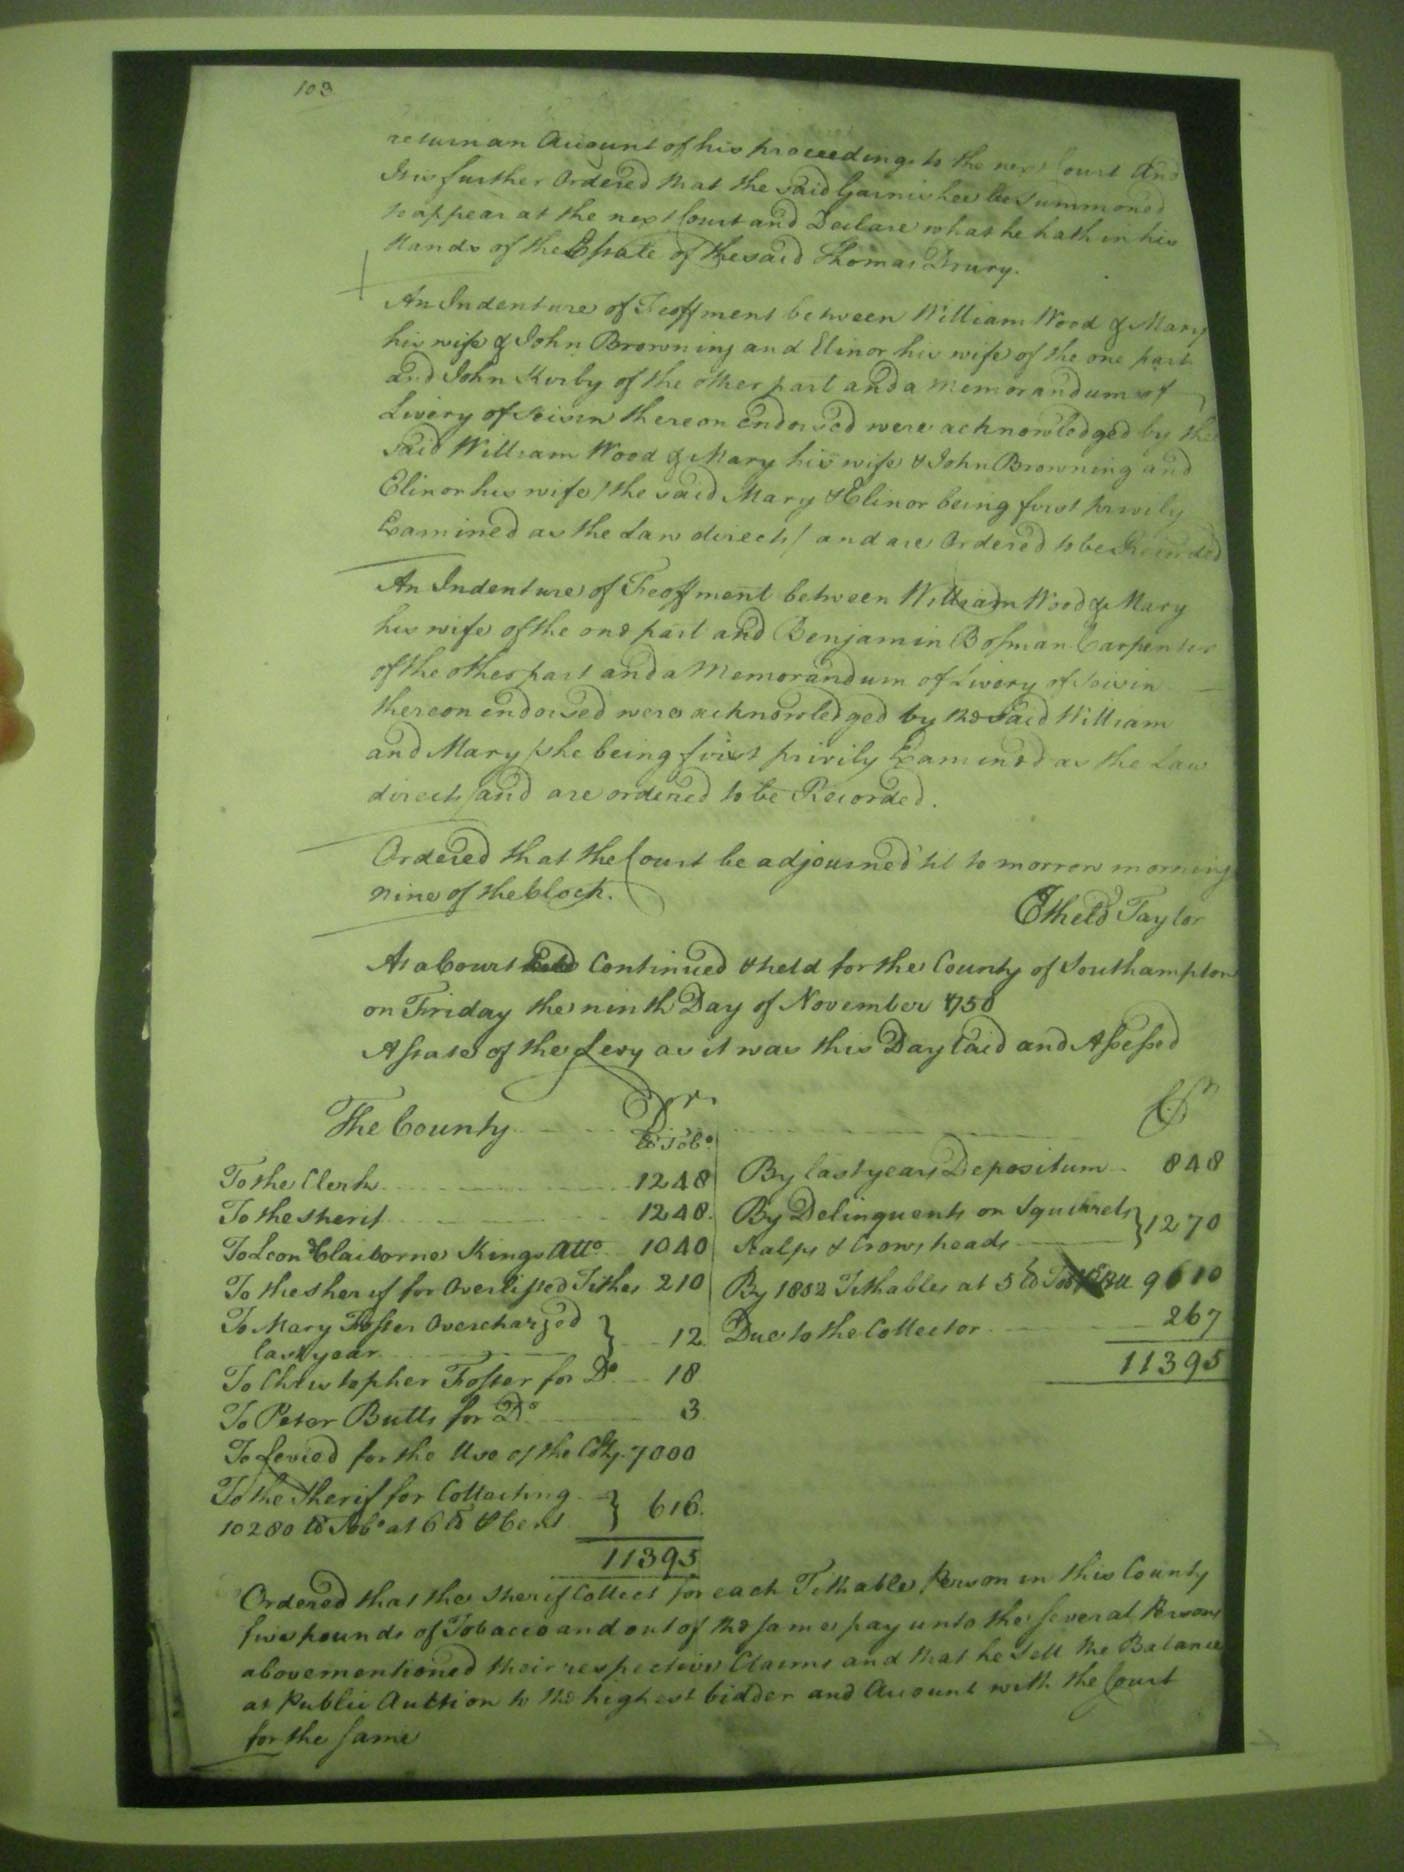 103
return an Account of his proceedings to the next Court And
It is further Ordered that the said Garnishee be Summoned
to appear at the next Court and Declare what he hath in his
Hands of the Estate of the said Thomas Drury.
An Indenture of Feoffment between William Wood & Mary
his wife & John Browning and Elinor his wife of the one part
and John Kirby of the other part and a memorandum of
Livery of Seisin thereon endorsed were acknowledged by the
said William Wood & Mary his wife & John Browning and
Elinor his wife /the said Mary & Elinor being first privily
Examined as the Law directs/ and are Ordered to be Recorded
An Indenture of Feoffment between William Wood & Mary
his wife of the one part and Benjamin Bosman Carpenter
of the other part and a Memorandum of Livery of Seisin
thereon endorsed were acknowledged by the said William
and Mary /she being first privily Examined as the Law
directs/ and are ordered to be Recorded.
Ordered that the Court be adjourned 'til to morrow morning
nine of the Clock.
Etheld Taylor
At a Court Continued & held for the County of Southampton
on Friday the ninth Day of November 1750
A State of the Levy as it was this Day laid and Assessed
The County Dr. Cr
lb Tobo.
To the Clerk 1248 By last years Depositum 848
To the Sherif 1248. By Delinquents on Squirrels } 1270
To Leond Claiborne Kings Atto 1040 Scalps & Crows heads
To the Sherif for Overlisted Tithes 210 By 1882 Tithables at 5 lb Tob 9610
To Mary Foster Overcharged } 12 Due to the Collector 267
last year 11395
To Christopher Foster for Do. 18
To Peter Butts for Do 3
To Levied for the Use of the Coty. 7000
To the Sherif for Collecting } 616.
10280 lb Tobo at 6 lb & Cent
11395
Ordered that the Sherif Collect for each Tithable Person in this County
five pounds of Tobacco and out of the same pay unto the several Persons
above mentioned their respective Claims and that he Sell the Balance
at Public Auction to the highest bidder and Account with the Court
for the same